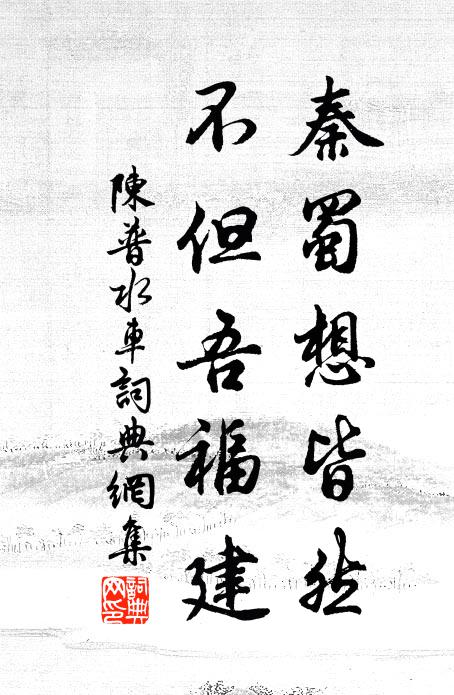 秦蜀想皆然
不但吾福建
陳普水車詞典網集
詞典网印